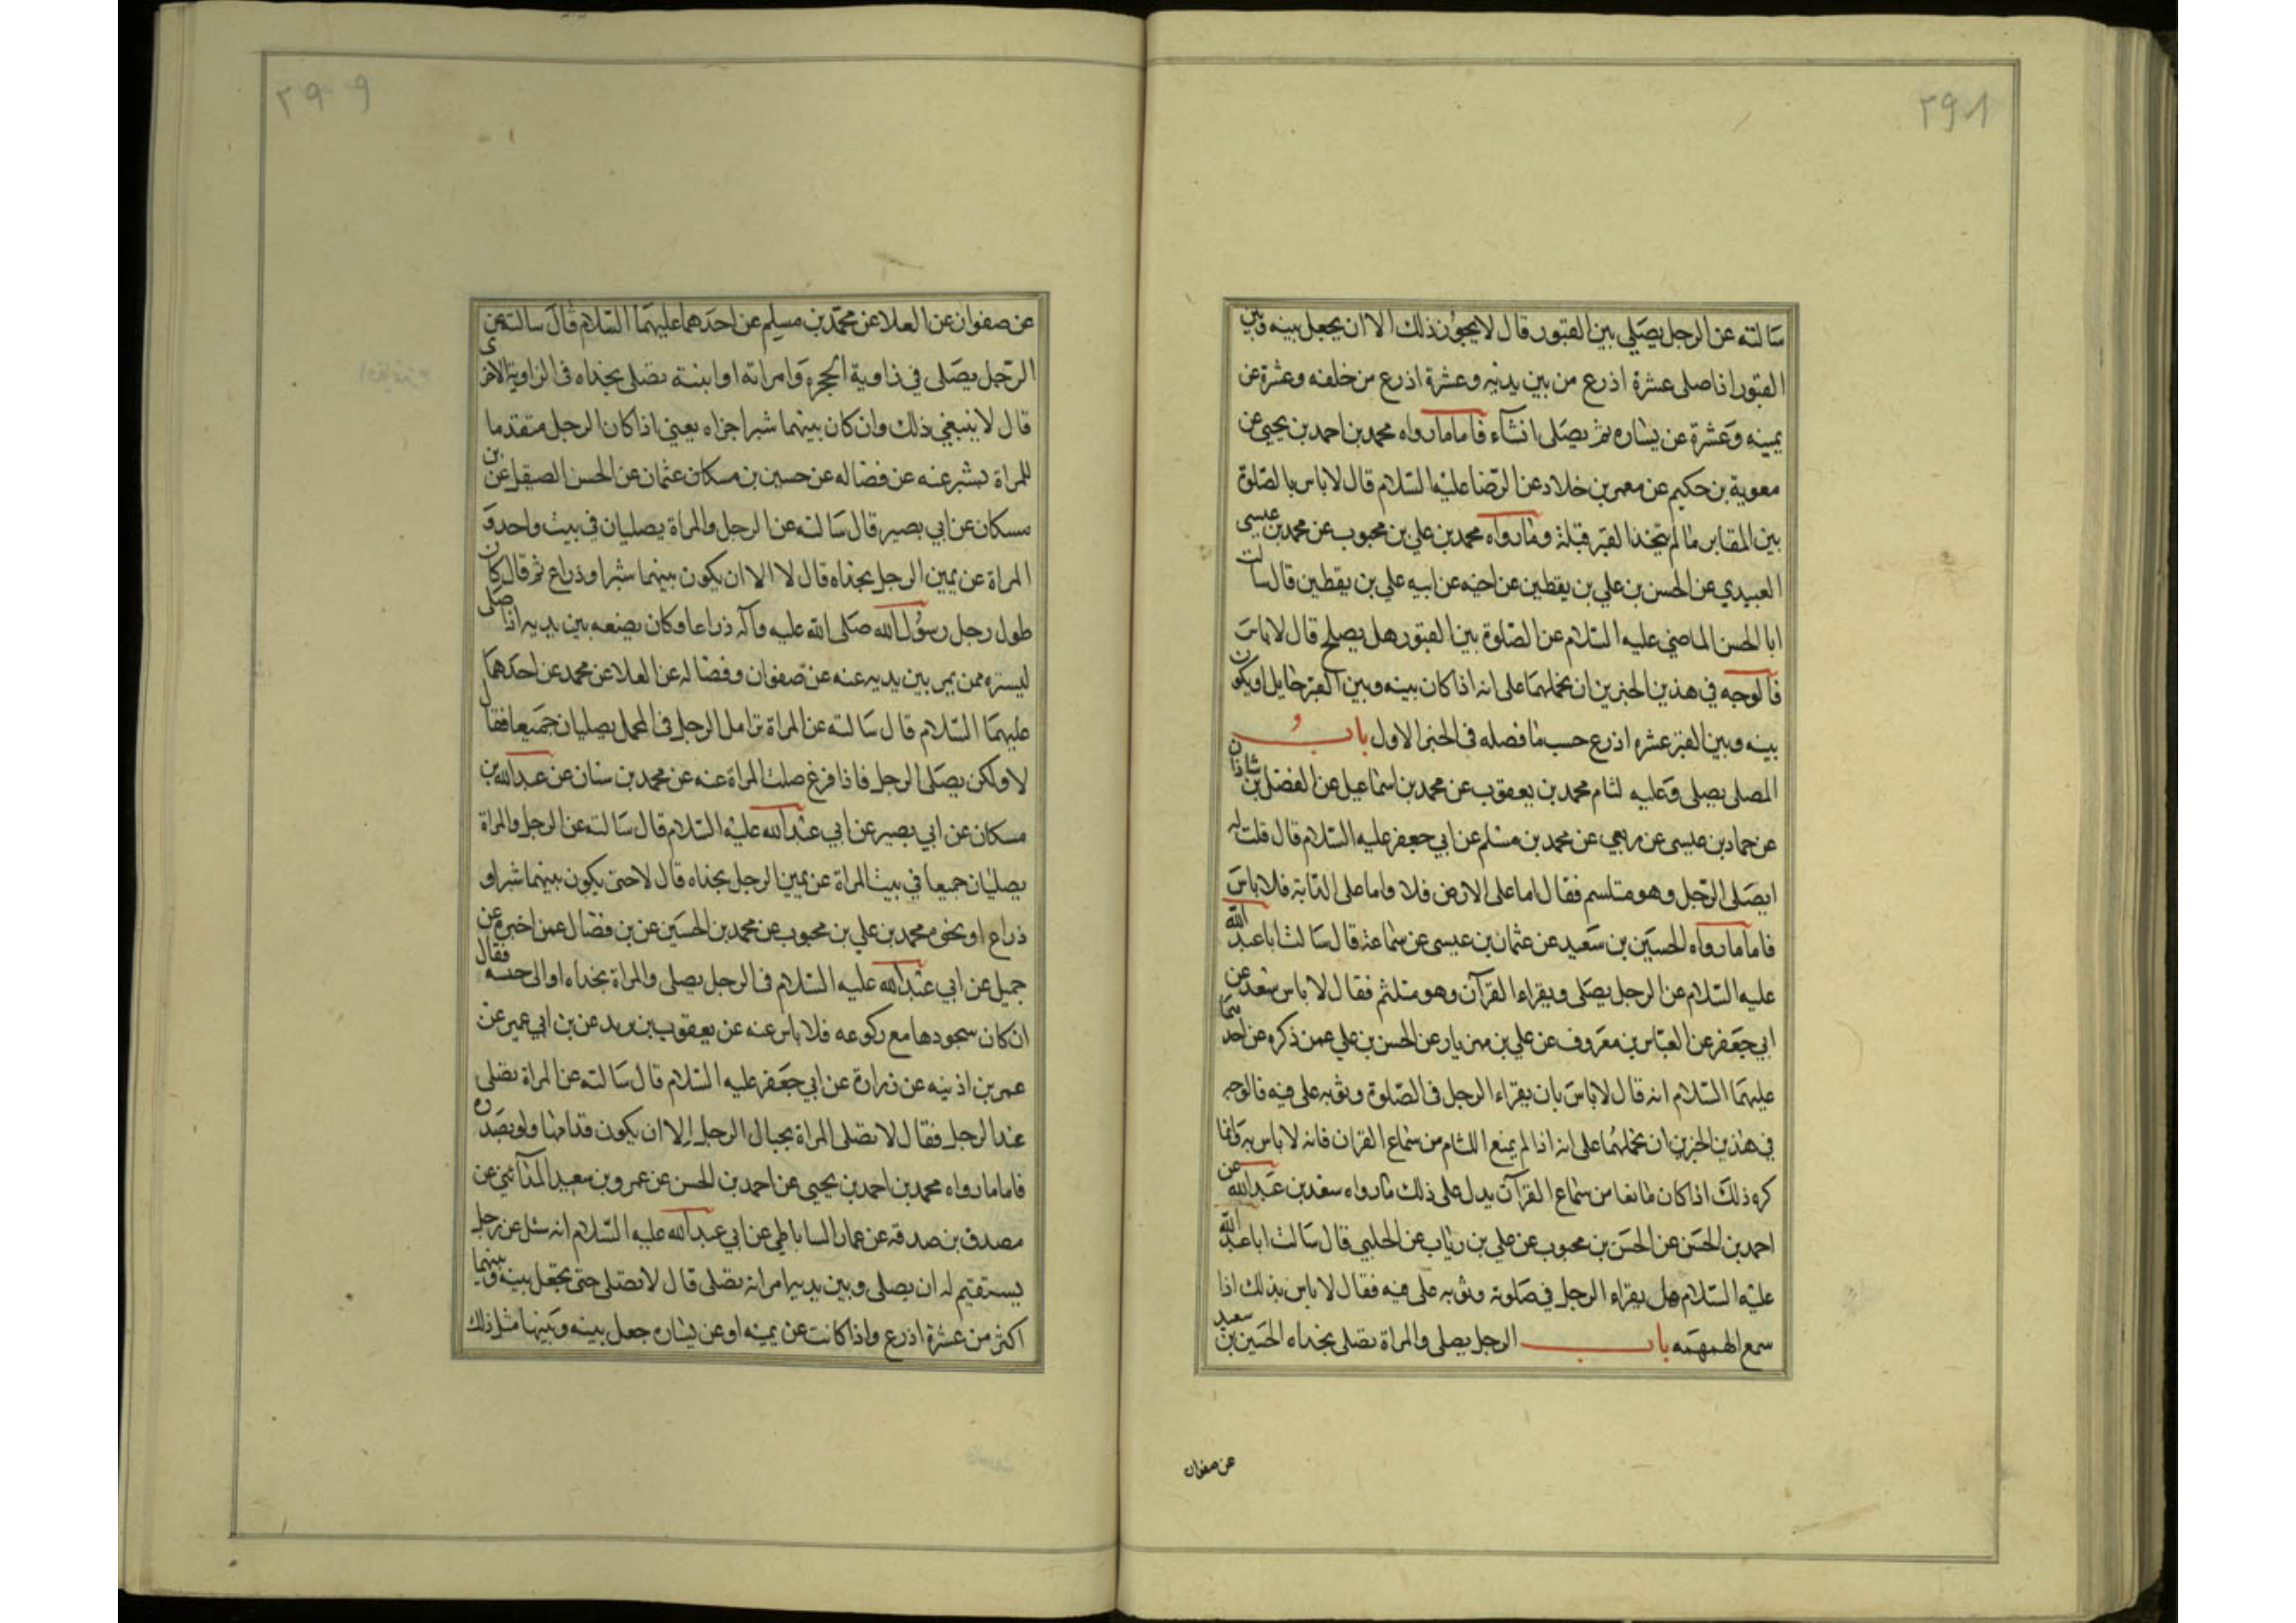 ٢٩٨
سالته عن الرجل يصلي بين القبور قال لا يجوز ذلك الا ان يجعل بينه وبين
القبور اذا صلى عشرة اذرع من بين يديه وعشرة اذرع من خلفه وعشرة عن
يمينه وعشرة عن يساره ثم يصلى انشاء فاما ما رواه محمد بن احمد بن يحيى عن
معوية بن حكيم عن معمر بن خلاد عن الرضا عليه السلام قال لا باس بالصلوة
بين المقابر ما لم يتخذ القبر قبلة وما رواه محمد بن علي بن محبوب عن محمد بن عيسى
العبيدي عن الحسن بن علي بن يقطين عن اخيه عن ابيه علي بن يقطين قال سالت
ابا الحسن الماضي عليه السلام عن الصلوة بين القبور هل يصلح قال لا باس
فالوجه في هذين الخبرين ان نحملهما على انه اذا كان بينه وبين القبر حايل او يكون
بينه وبين القبر عشره اذرع حسب ما فصله فى الخبر الاول باب
المصلى يصلى وعليه لثام محمد بن يعقوب عن محمد بن اسماعيل عن الفضل بن شاذان
عن حماد بن عيسى عن ربعي عن محمد بن مسلم عن ابي جعفر عليه السلام قال قلت له
ايصلى الرجل وهو متلسم فقال اما على الارض فلا واما على الدابة فلا باس
فاما ما رواه الحسين بن سعيد عن عثمان بن عيسى عن سماعة قال سالت ابا عبد الله
عليه السلام عن الرجل يصلى ويقراء القرآن وهو متلثم فقال لا باس سعد عن
ابي جعفر عن العباس بن معروف عن علي بن مهزيار عن الحسن بن علي عمن ذكره عن احدهما
عليهما السلام انه قال لا باس بان يقراء الرجل فى الصلوة وثوبه على فيه فالوجه
في هذين الخبرين ان نحملهما على انه اذا لم يمنع اللثام من سماع القران فانه لا باس به وانما
كره ذلك اذا كان مانعا من سماع القرآن يدل على ذلك ما رواه سعد بن عبد الله عن
احمد بن الحسن عن الحسن بن محبوب عن علي بن رياب عن الحلبي قال سالت ابا عبد الله
عليه السلام هل يقراء الرجل في صلوته وثوبه على فيه فقال لا باس بذلك اذا
سمع الهمهمه باب الرجل يصلى والمراة تصلى بحذاه الحسين بن سعيد
عن صفوان
٢٩٩
عن صفوان عن العلا عن محمد بن مسلم عن احدهما عليهما السلام قال سالته عن
الرجل يصلى في زاوية الحجره وامراته او ابنته تصلى بحذاه فى الزاوية الاخرى
قال لا ينبغي ذلك وان كان بينهما شبر اجزاه يعني اذا كان الرجل متقدما
للمراة بشبر عنه عن فضاله عن حسين بن عثمان عن الحسن الصيقل عن بن
مسكان عن ابي بصير قال سالته عن الرجل والمراة يصليان في بيت واحد و
المراة عن يمين الرجل بحذاه قال لا الا ان يكون بينهما شبر او ذراع ثم قال كان
طول رحل رسول الله صلى الله عليه وآله ذراعا وكان يضعه بين يديه اذا صلى
ليستره ممن يمر بين يديه عنه عن صفوان وفضاله عن العلا عن محمد عن احدهما
عليهما السلام قال سالته عن المراة تزامل الرجل فى المحمل يصليان جميعا فقال
لا ولكن يصلى الرجل فاذا فرغ صلت المراة عنه عن محمد بن سنان عن عبد الله بن
مسكان عن ابي بصير عن ابي عبد الله عليه السلام قال سالته عن الرجل والمراة
يصليان جميعا في بيت المراة عن يمين الرجل بحذاه قال لا حتى يكون بينهما شبر او
ذراع او نحوه محمد بن علي بن محبوب عن محمد بن الحسين عن بن فضال عمن اخبره عن
جميل عن ابي عبد الله عليه السلام فى الرجل يصلى والمراة بحذاه او الى جنبه فقال
ان كان سجودها مع ركوعه فلا باس عنه عن يعقوب بن يزيد عن بن ابي عمير عن
عمر بن اذينه عن زرارة عن ابي جعفر عليه السلام قال سالته عن المراة تصلى
عند الرجل فقال لا تصلى المراة بحيال الرجل الا ان يكون قدامها ولو بصدره
فاما ما رواه محمد بن احمد بن يحيى عن احمد بن الحسن عن عمرو بن سعيد المدائني عن
مصدق بن صدقة عن عمار الساباطي عن ابي عبد الله عليه السلام انه سئل عن رجل
يستقيم له ان يصلى وبين يديه امراة تصلى قال لا تصلى حتى يجعل بينه وبينهما
اكثر من عشرة اذرع واذا كانت عن يمينه او عن يساره جعل بينه وبينها مثل ذلك